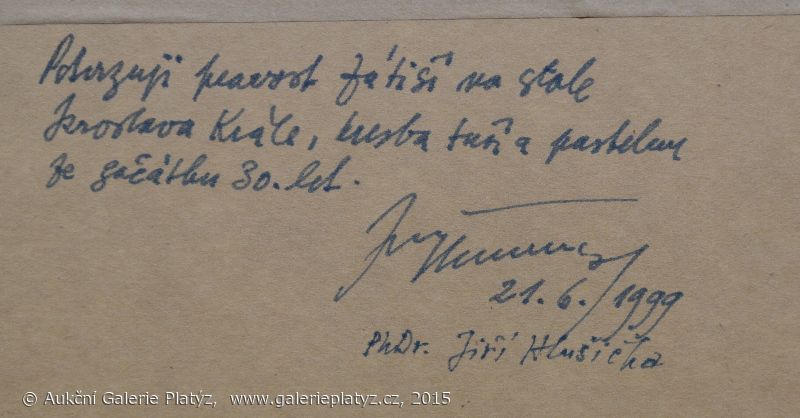 Potvrzuji pravost Zátiší na stole
Jaroslava Krále, kresba tuší a pastelem
ze začátku 30. let.
21. 6. / 1999
PhDr. Jiří Hlušička
© Aukční Galerie Platýz, www.galerieplatyz.cz, 2015